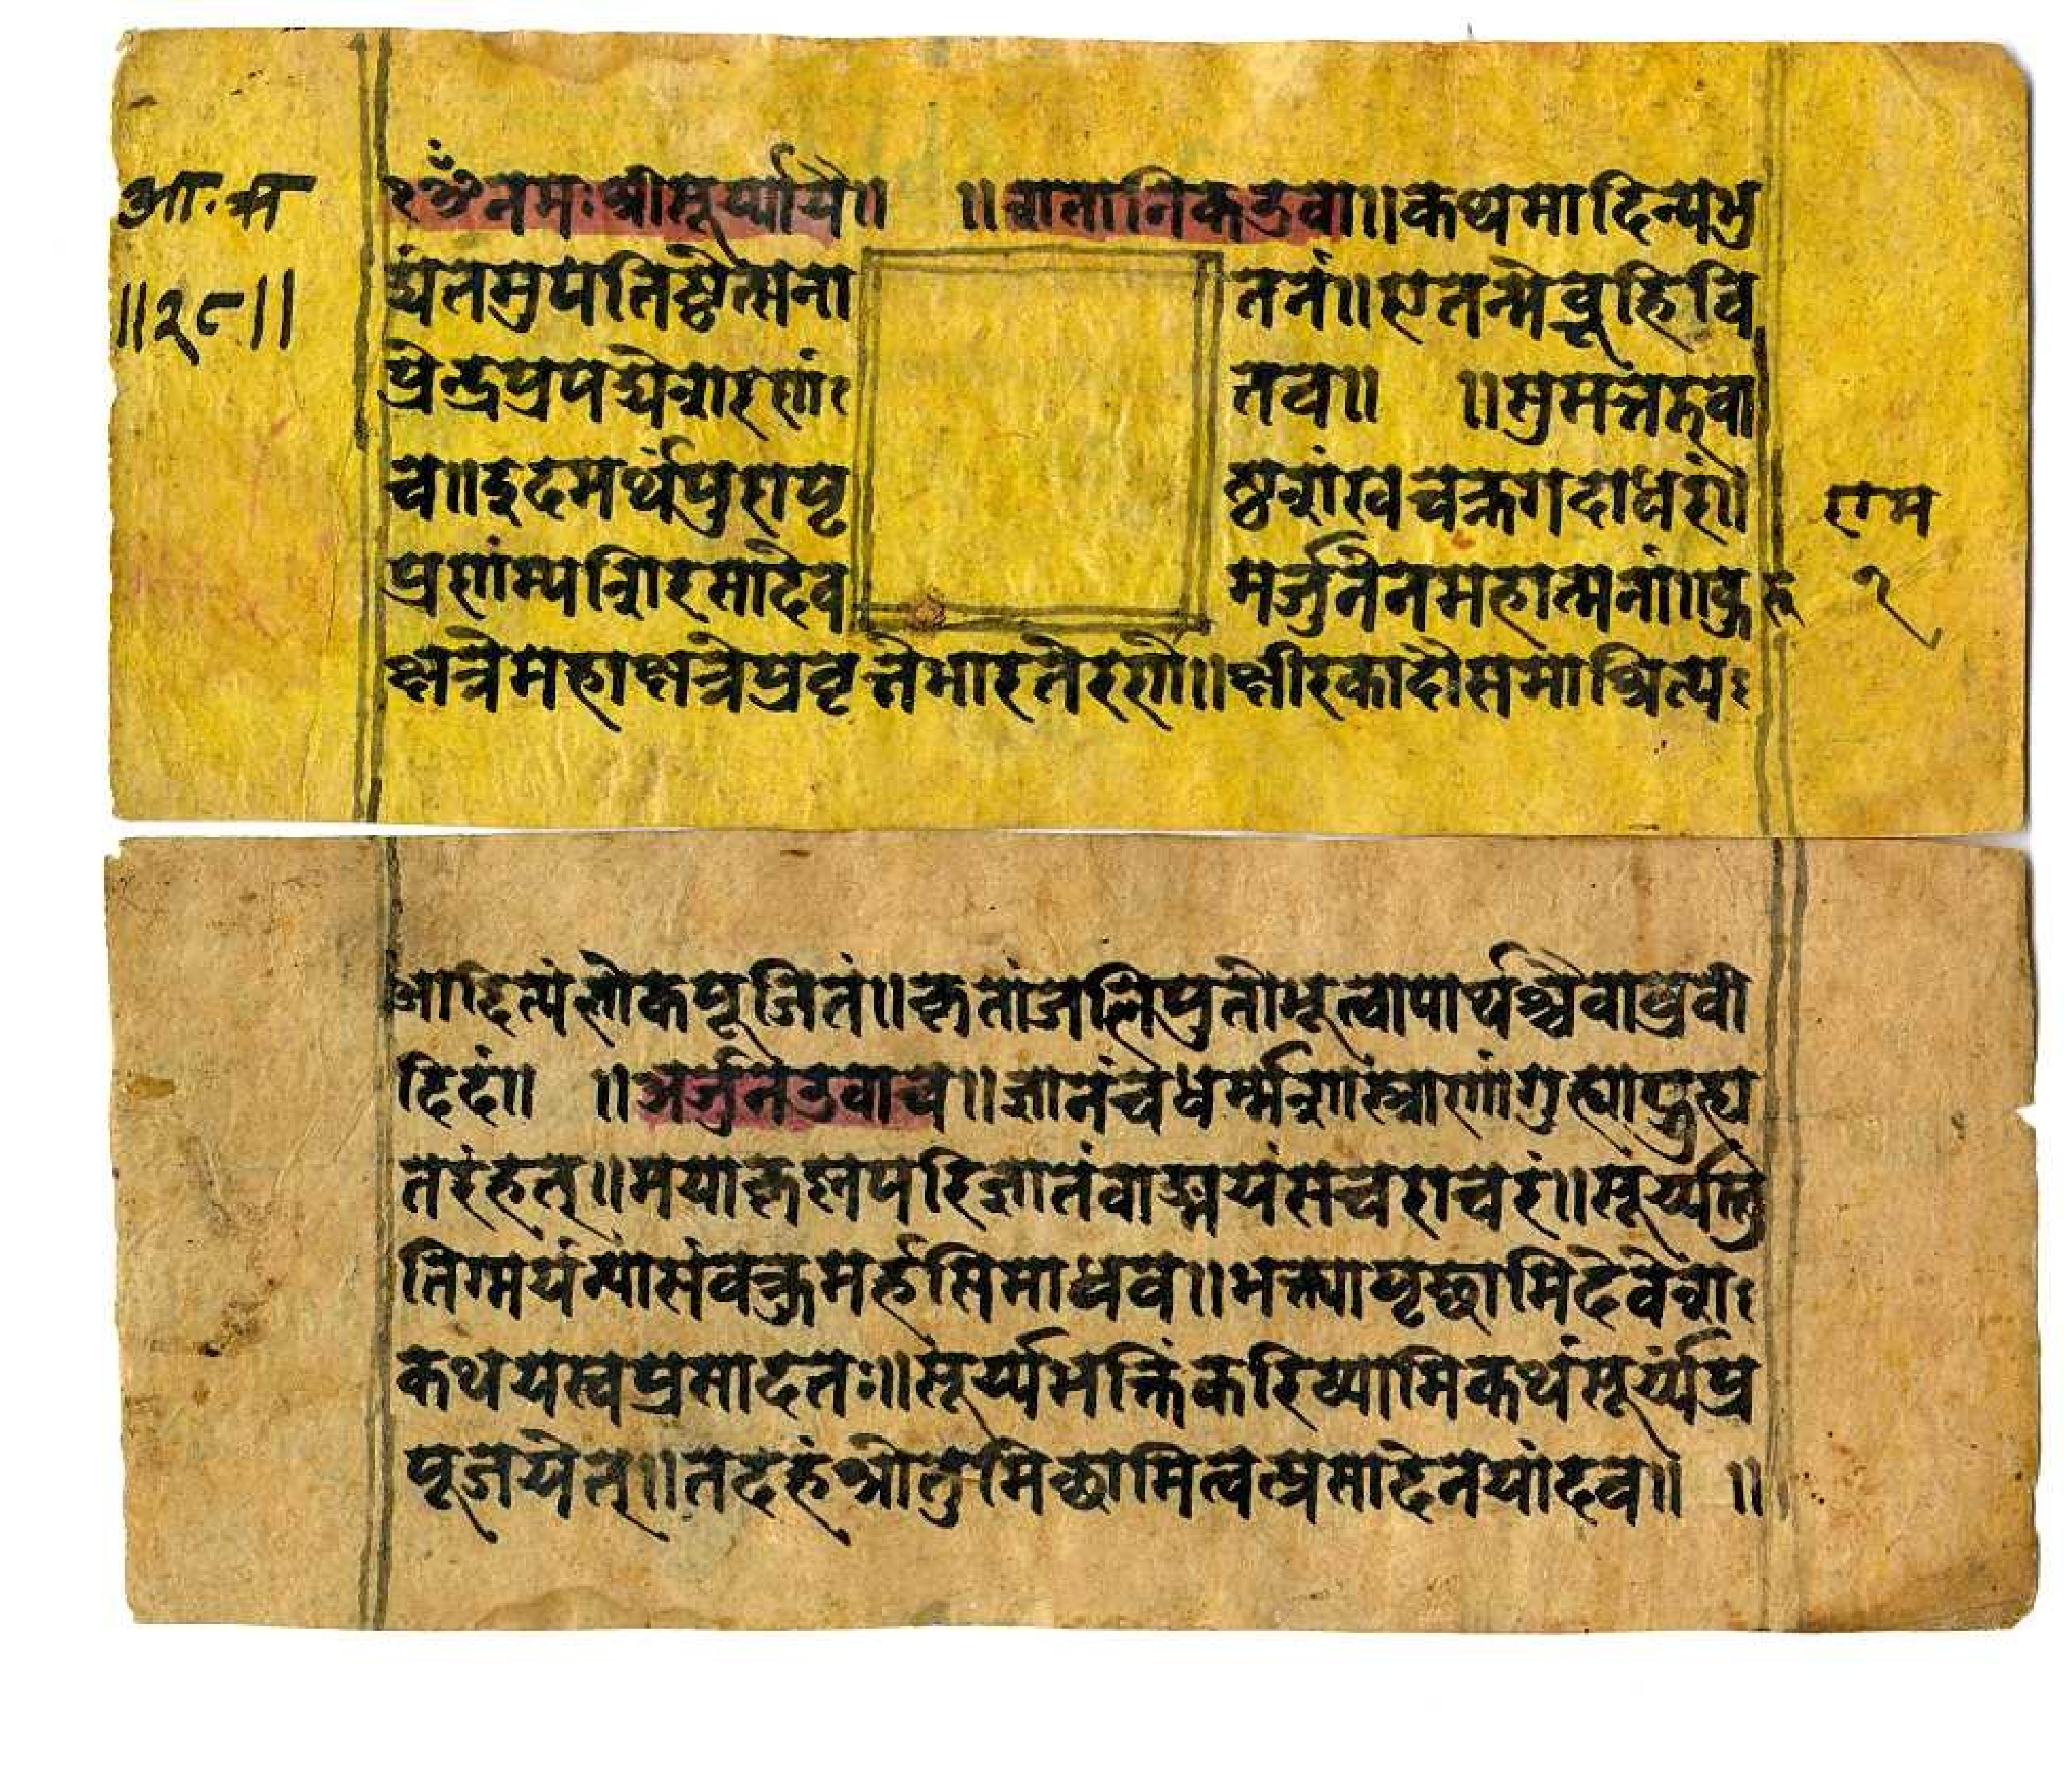 आ.भ
॥२८॥
१ॐ नमः श्रीसूर्य्यायै॥ ॥शतानिकउवा॥कथमादित्यमु
द्यंतमुपतिष्ठेत्सना तनं॥एतन्मेब्रूहिवि
प्रेन्द्रप्रपद्येशरणं तव॥ ॥सुमन्तरुवा
च॥इदमर्थंपुरापृ ष्ठशंखचक्रगदाधरं॥
प्रणंम्यशिरसादेव मर्जुनेनमहात्मनां॥कुरु
राम
१
क्षेत्रेमहाक्षत्रेप्रवृत्तेभारतेरणे॥क्षीरकादौसमाश्रित्य
आदित्यंलोकपूजितं॥कृतांजलिपुतोभूत्वापार्थश्चैवाब्रवी
दिदं॥ ॥अर्जुनेउवाच॥ज्ञानंचधर्म्मशास्त्राणांगुह्याद्गुह्य
तरंहत्॥मयाकृष्णपरिज्ञातंवाङ्मयंसचराचरं॥सूर्य्यस्तु
तिग्मयंन्यासंवक्तुमर्हसिमाधव॥भक्त्यापृच्छामिदेवेश
कथयस्वप्रसादतः॥सूर्य्यभक्तिंकरिष्यामिकथंसूर्य्यंप्र
पूजयेत्॥तदहंश्रोतुमिच्छामित्वत्प्रसादेनयांदव॥ ॥